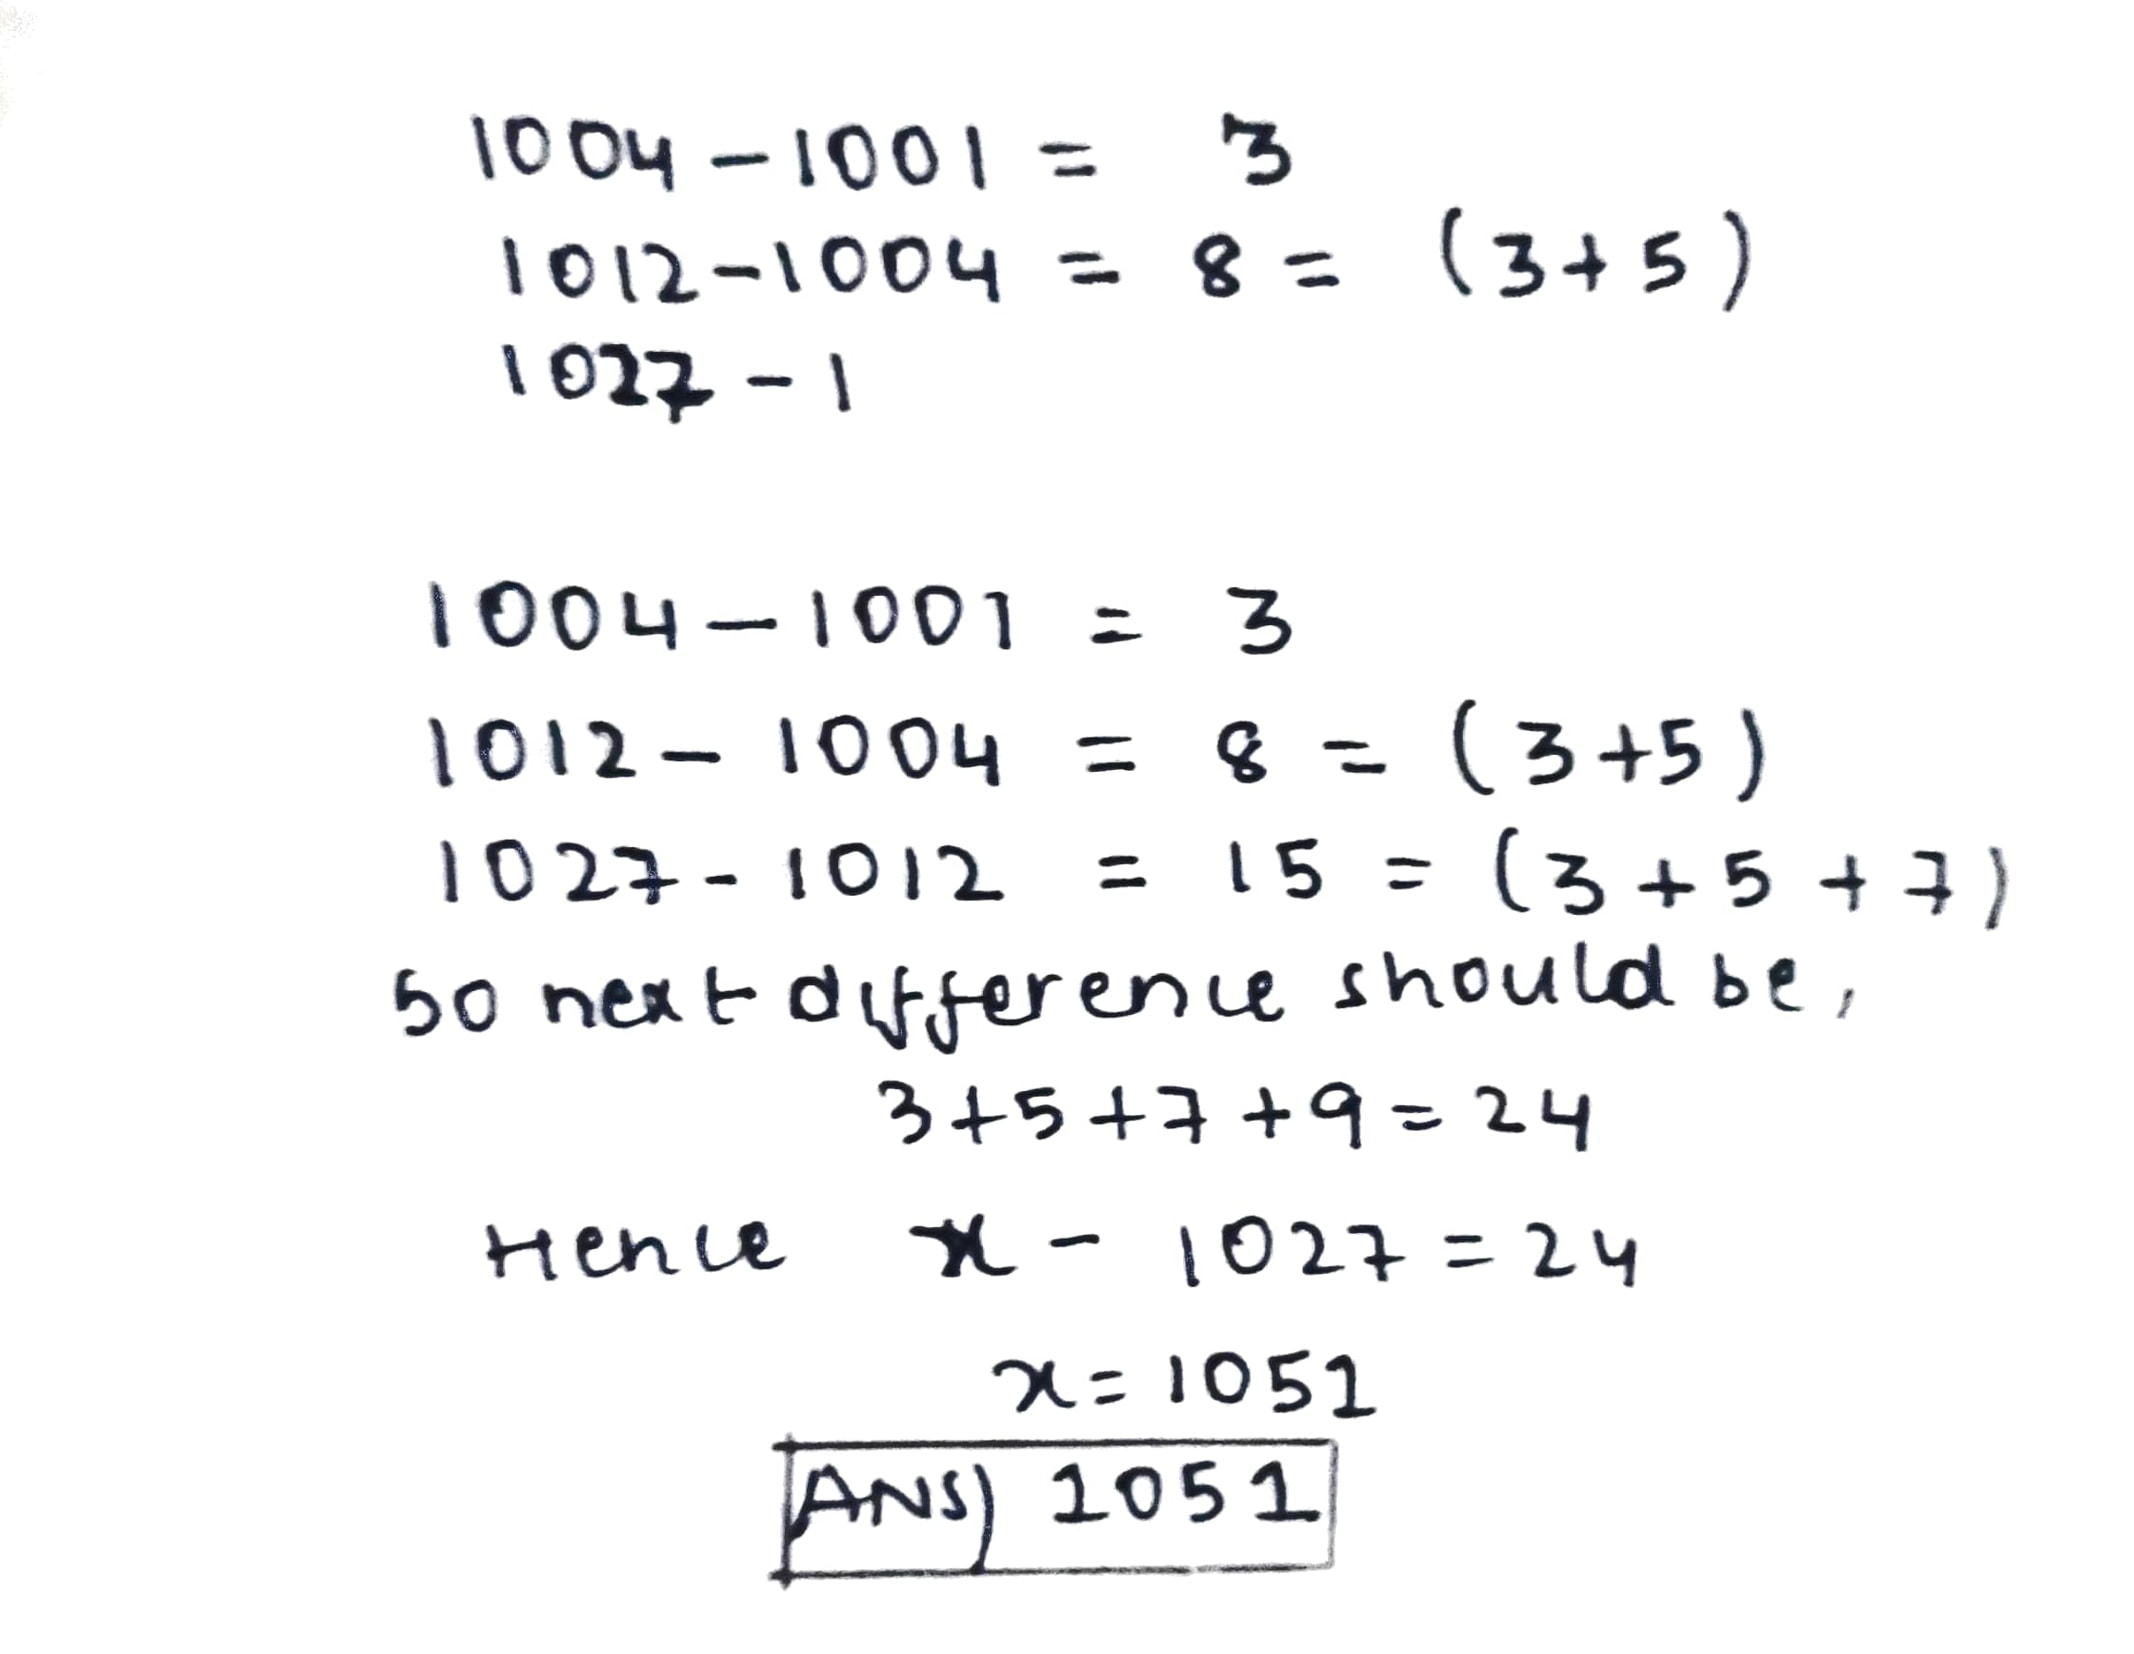 1004 - 1001 = 3
1012 - 1004 = 8 = (3+5)
1027 - 1
1004 - 1001 = 3
1012 - 1004 = 8 = (3+5)
1027 - 1012 = 15 = (3+5+7)
So next difference should be,
3+5+7+9=24
Hence x - 1027 = 24
x = 1051
ANS) 1051